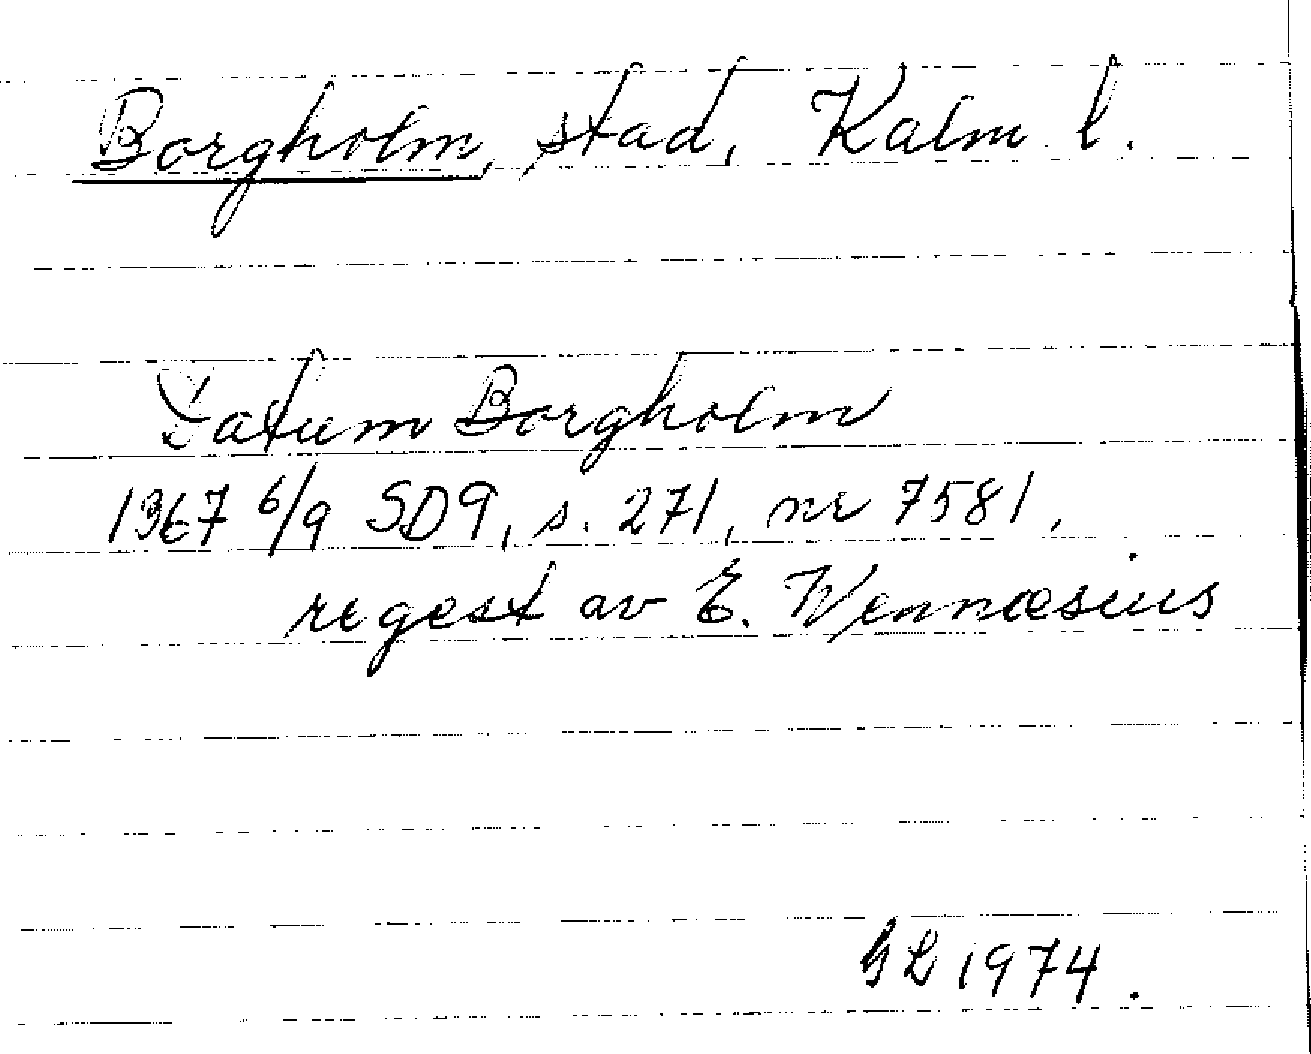 Borgholm, stad, Kalm l.
Datum Borgholm
1367 6/9 SD9, s. 271, nr 7581,
regest av E. Wennæsius
GL 1974.